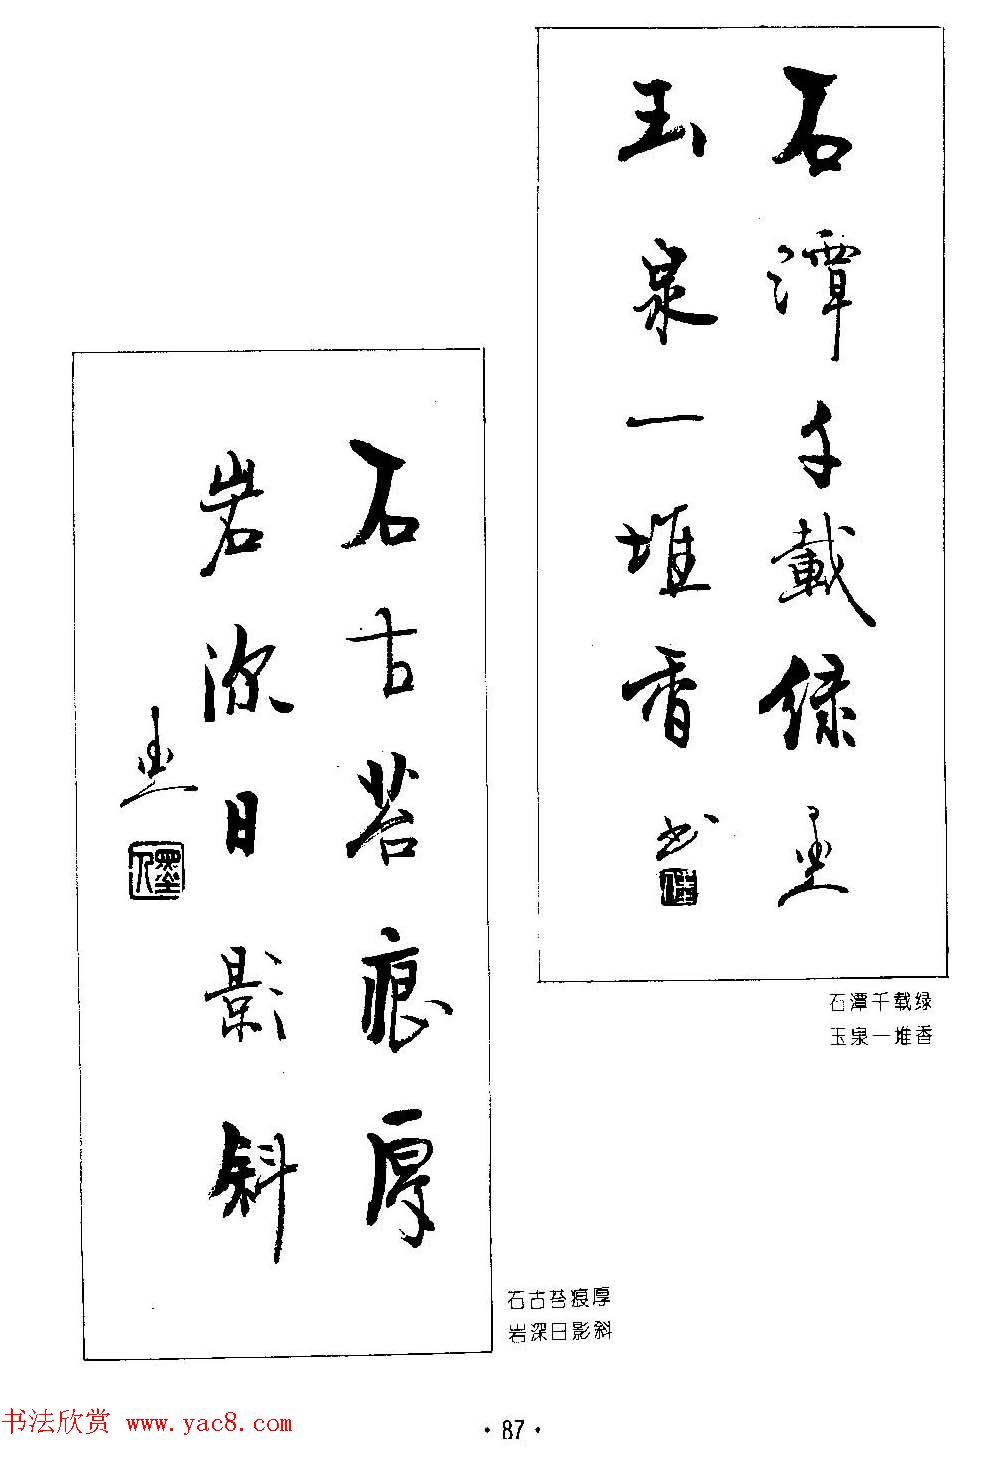 石潭千載緑
玉泉一堆香
石潭千载绿
玉泉一堆香
石古苔痕厚
岩深日影斜
石古苔痕厚
岩深日影斜
·87·
书法欣赏 www.yac8.com